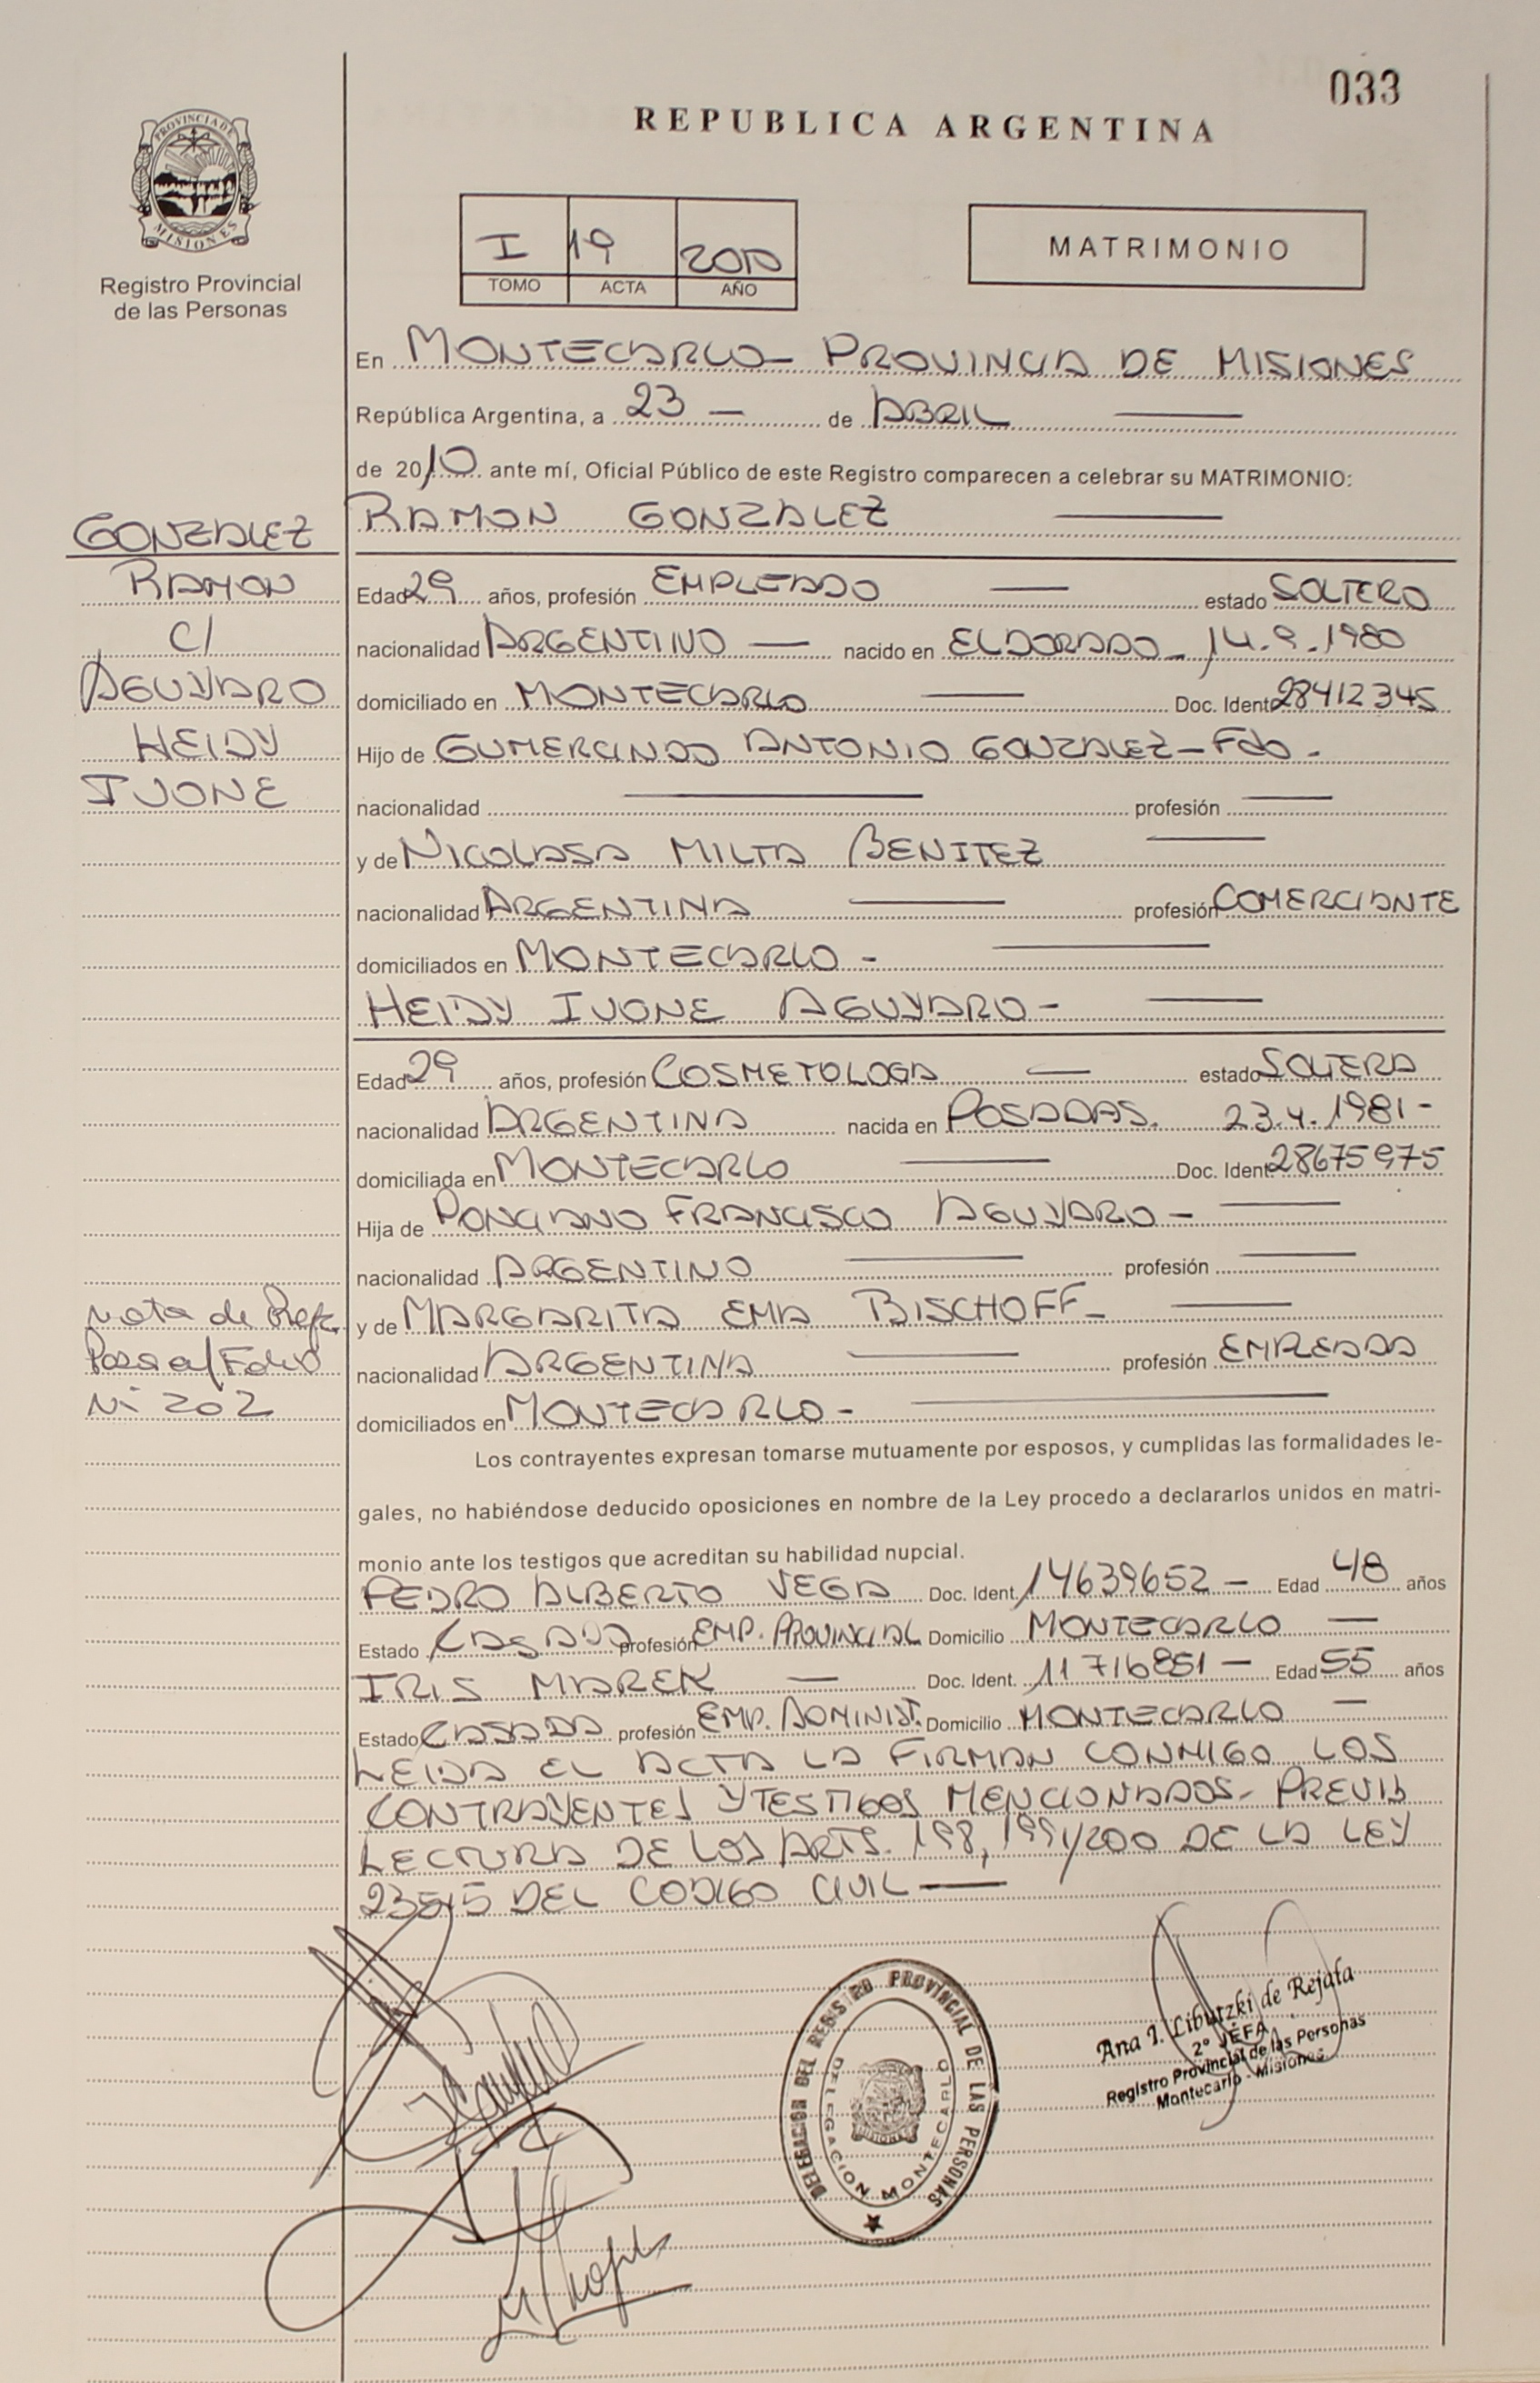 033
REPUBLICA ARGENTINA
PROVINCIA DE
MISIONES
Registro Provincial
de las Personas
I 19 2010
TOMO ACTA AÑO
MATRIMONIO
En MONTECARLO - PROVINCIA DE MISIONES
República Argentina, a 23 — de ABRIL —
de 2010 ante mí, Oficial Público de este Registro comparecen a celebrar su MATRIMONIO:
RAMON GONZALEZ —
GONZALEZ
RAMON
C/
AGUYARO
HEIDY
IVONE
Edad 29 años, profesión EMPLEADO — estado SOLTERO
nacionalidad ARGENTINO — nacido en ELDORADO - 14.9.1980
domiciliado en MONTECARLO — Doc. Ident. 28412345
Hijo de GUMERCINDO ANTONIO GONZALEZ - Fdo -
nacionalidad — profesión —
y de NICOLASA MILTA BENITEZ —
nacionalidad ARGENTINA — profesión COMERCIANTE
domiciliados en MONTECARLO - —
HEIDY IVONE AGUYARO - —
Edad 29 años, profesión COSMETOLOGA — estado SOLTERA
nacionalidad ARGENTINA nacida en POSADAS. 23.4.1981 -
domiciliada en MONTECARLO — Doc. Ident. 28675975
Hija de PONCIANO FRANCISCO AGUYARO - —
nacionalidad ARGENTINO — profesión —
y de MARGARITA EMA BISCHOFF - —
nacionalidad ARGENTINA — profesión EMPLEADA
domiciliados en MONTECARLO - —
Nota de Ref.
Pasa a/ Folio
N° 202
Los contrayentes expresan tomarse mutuamente por esposos, y cumplidas las formalidades le-
gales, no habiéndose deducido oposiciones en nombre de la Ley procedo a declararlos unidos en matri-
monio ante los testigos que acreditan su habilidad nupcial.
PEDRO ALBERTO VEGA Doc. Ident. 14639652 - Edad 48 años
Estado CASADO profesión EMP. PROVINCIAL Domicilio MONTECARLO —
IRIS MAREK — Doc. Ident. 11716851 - Edad 55 años
Estado CASADA profesión EMP. ADMINIST. Domicilio MONTECARLO —
LEIDA EL ACTA LA FIRMAN CONMIGO LOS
CONTRAYENTES Y TESTIGOS MENCIONADOS - PREVIA
LECTURA DE LOS ARTS. 198, 199 y 200 DE LA LEY
23515 DEL CODIGO CIVIL —
DELEGACION DEL REGISTRO PROVINCIAL DE LAS PERSONAS
DELEGACION MONTECARLO
MISIONES
Ana I. Libutzki de Rejala
2º JEFA
Registro Provincial de las Personas
Montecarlo - Misiones